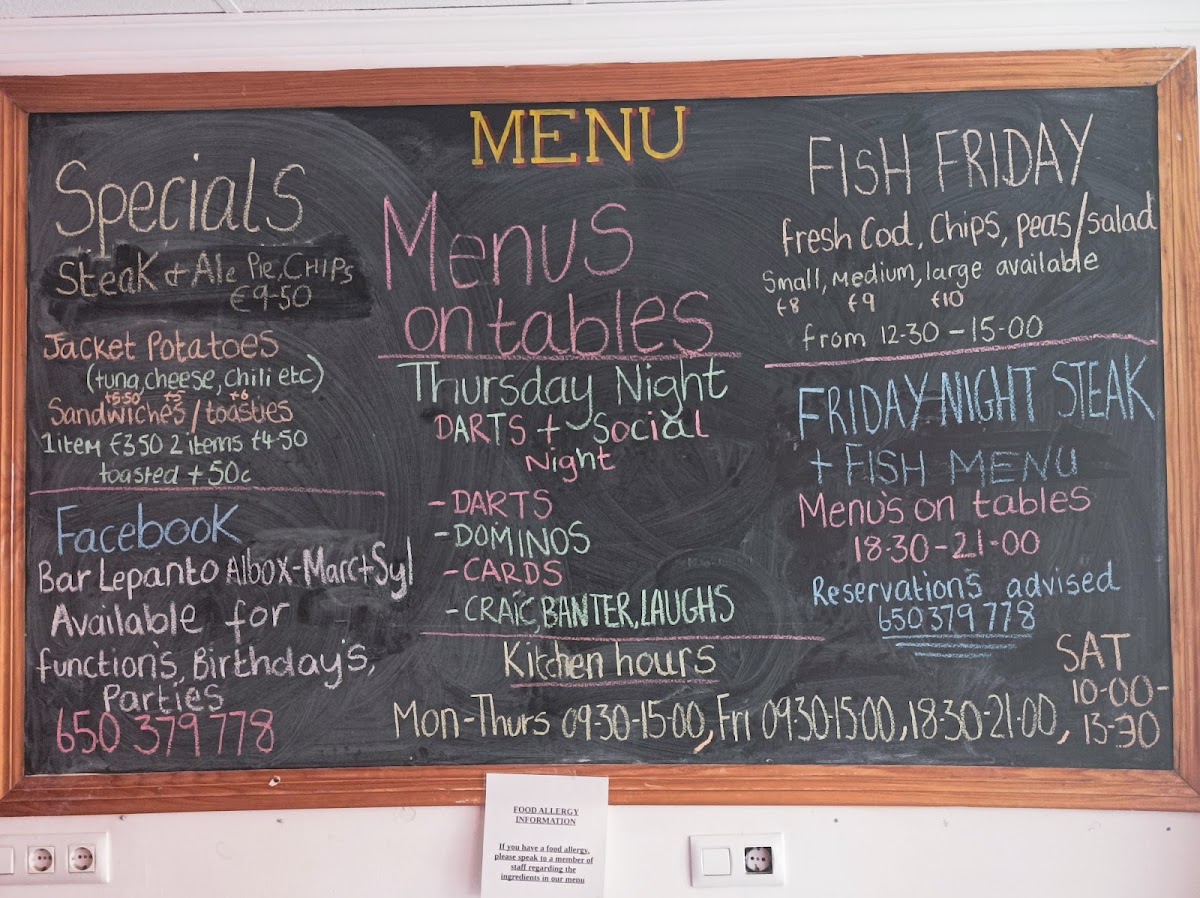 MENU
Specials
Steak & Ale Pie, CHIPs
€9-50
Jacket Potatoes
(tuna, cheese, chili etc)
€5-50 €5 €6
Sandwiches/toasties
1 item €3.50 2 items €4-50
toasted + 50c
Facebook
Bar Lepanto Albox-Marc+Syl
Available for
function's, Birthday's,
Parties
650 379 778
Menus
on tables
Thursday Night
DARTS + Social
Night
- DARTS
- DOMINOS
- CARDS
- CRAIC, BANTER, LAUGHS
Kitchen hours
Mon-Thurs 09-30-15-00, Fri 09-30-15-00, 18-30-21-00,
SAT
10-00-
13-30
FISH FRIDAY
fresh Cod, Chips, peas/salad
Small, Medium, large available
€8 €9 €10
from 12-30 - 15-00
FRIDAY NIGHT STEAK
+ FISH MENU
Menu's on tables
18-30-21-00
Reservations advised
650 379 778
FOOD ALLERGY
INFORMATION
If you have a food allergy,
please speak to a member of
staff regarding the
ingredients in our menu